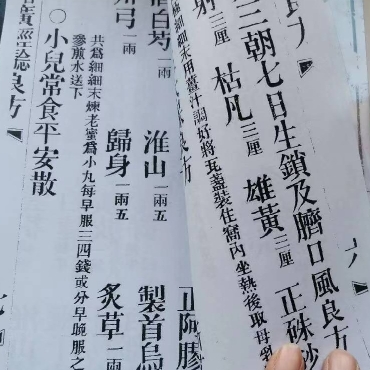 良方
三朝七日生鎖及臍口風良方
射三厘 枯凡三厘 雄黃三厘 正硃砂
細細末用薑汁調好將瓦盞裝在窩內坐熱後取母乳
良方
正阿膠
白芍一兩 淮山一兩五 製首烏
弓一兩 歸身一兩五 炙草一兩
共為細細末煉老蜜為小丸每早服三四錢或分早晚服之
參煎水送下
○小兒常食平安散
良方